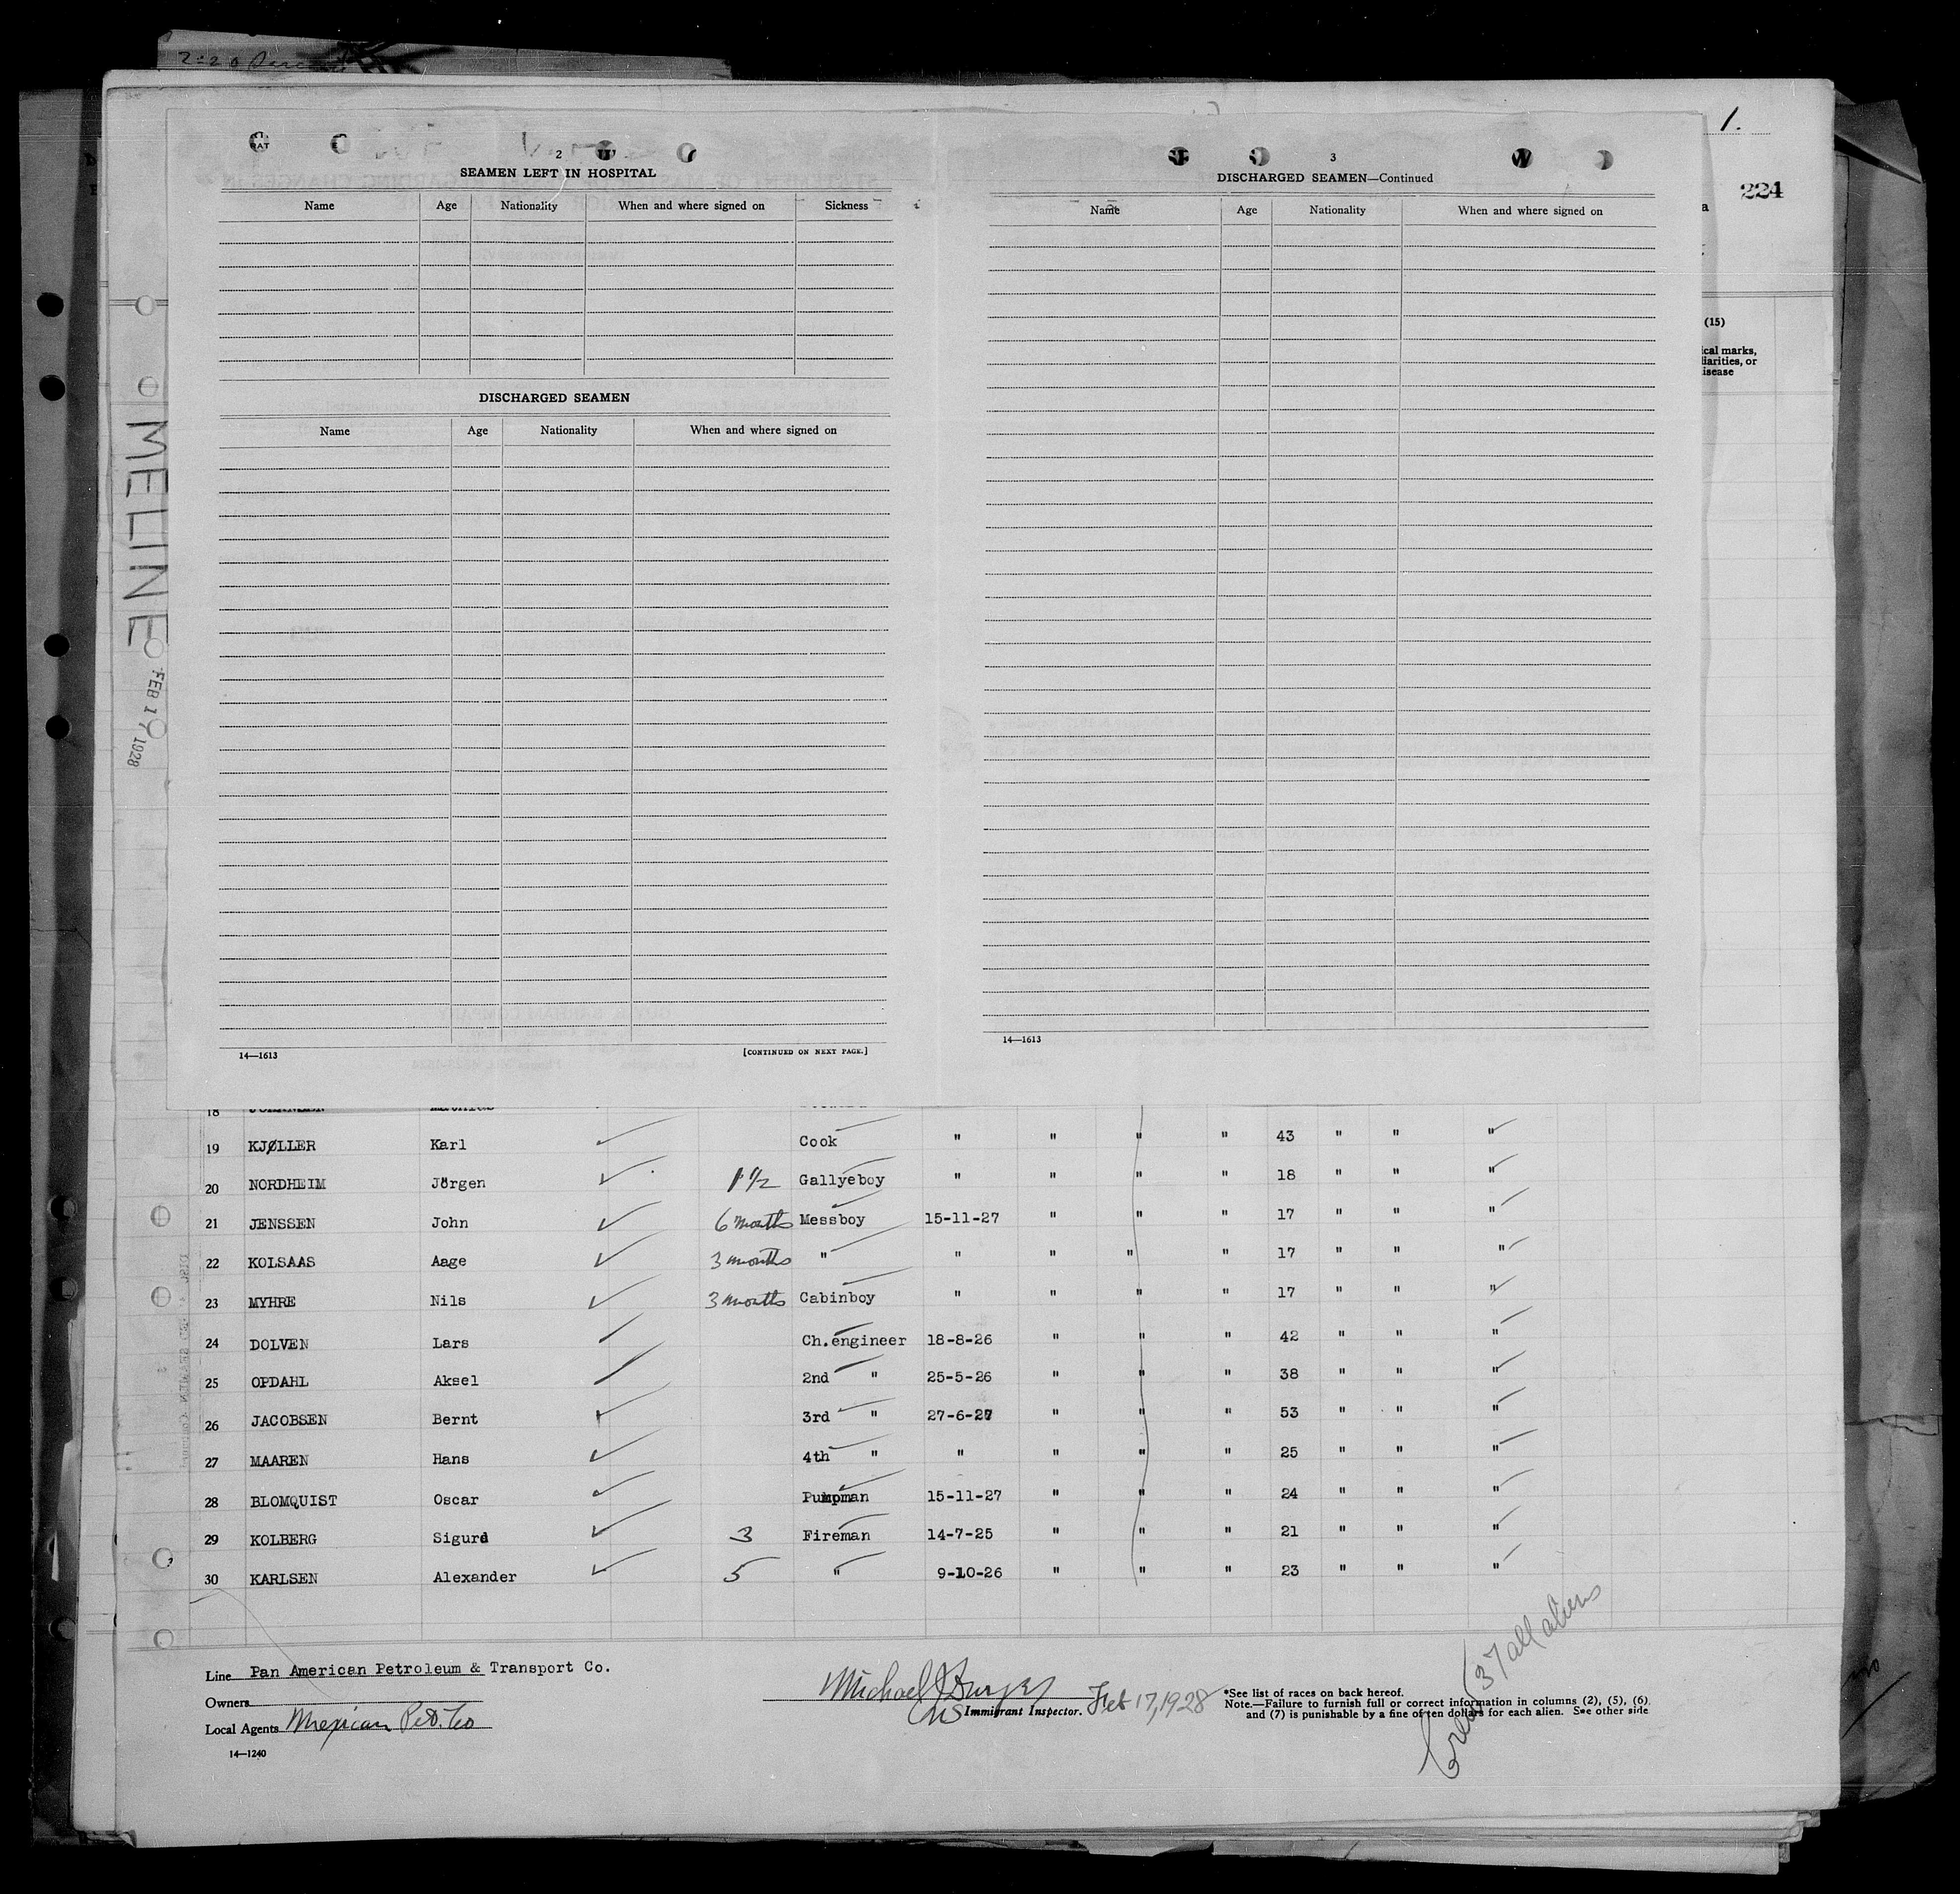 1.
224
(15)
ical marks,
liarities, or
isease
MELINE
FEB 17 1928
2
SEAMEN LEFT IN HOSPITAL
Name Age Nationality When and where signed on Sickness
DISCHARGED SEAMEN
Name Age Nationality When and where signed on
14—1613 [CONTINUED ON NEXT PAGE.]
3
DISCHARGED SEAMEN—Continued
Name Age Nationality When and where signed on
14—1613
18
19 KJØLLER Karl Cook " " " " 43 " " "
20 NORDHEIM Jörgen 1 1/2 Gallyeboy " " " " 18 " " "
21 JENSSEN John 6 months Messboy 15-11-27 " " " 17 " " "
22 KOLSAAS Aage 3 months " " " " " 17 " " "
23 MYHRE Nils 3 months Cabinboy " " " " 17 " " "
24 DOLVEN Lars Ch.engineer 18-8-26 " " " 42 " " "
25 OPDAHL Aksel 2nd " 25-5-26 " " " 38 " " "
26 JACOBSEN Bernt 3rd " 27-6-27 " " " 53 " " "
27 MAAREN Hans 4th " " " " " 25 " " "
28 BLOMQUIST Oscar Pumpman 15-11-27 " " " 24 " " "
29 KOLBERG Sigurd 3 Fireman 14-7-25 " " " 21 " " "
30 KARLSEN Alexander 5 " 9-10-26 " " " 23 " " "
Line Pan American Petroleum & Transport Co.
Owners
Local Agents Mexican Pet. Co
14—1240
Michael
Immigrant Inspector. Feb 17, 1928
*See list of races on back hereof.
Note.—Failure to furnish full or correct information in columns (2), (5), (6)
and (7) is punishable by a fine of ten dollars for each alien. See other side
Crew 37 all aliens